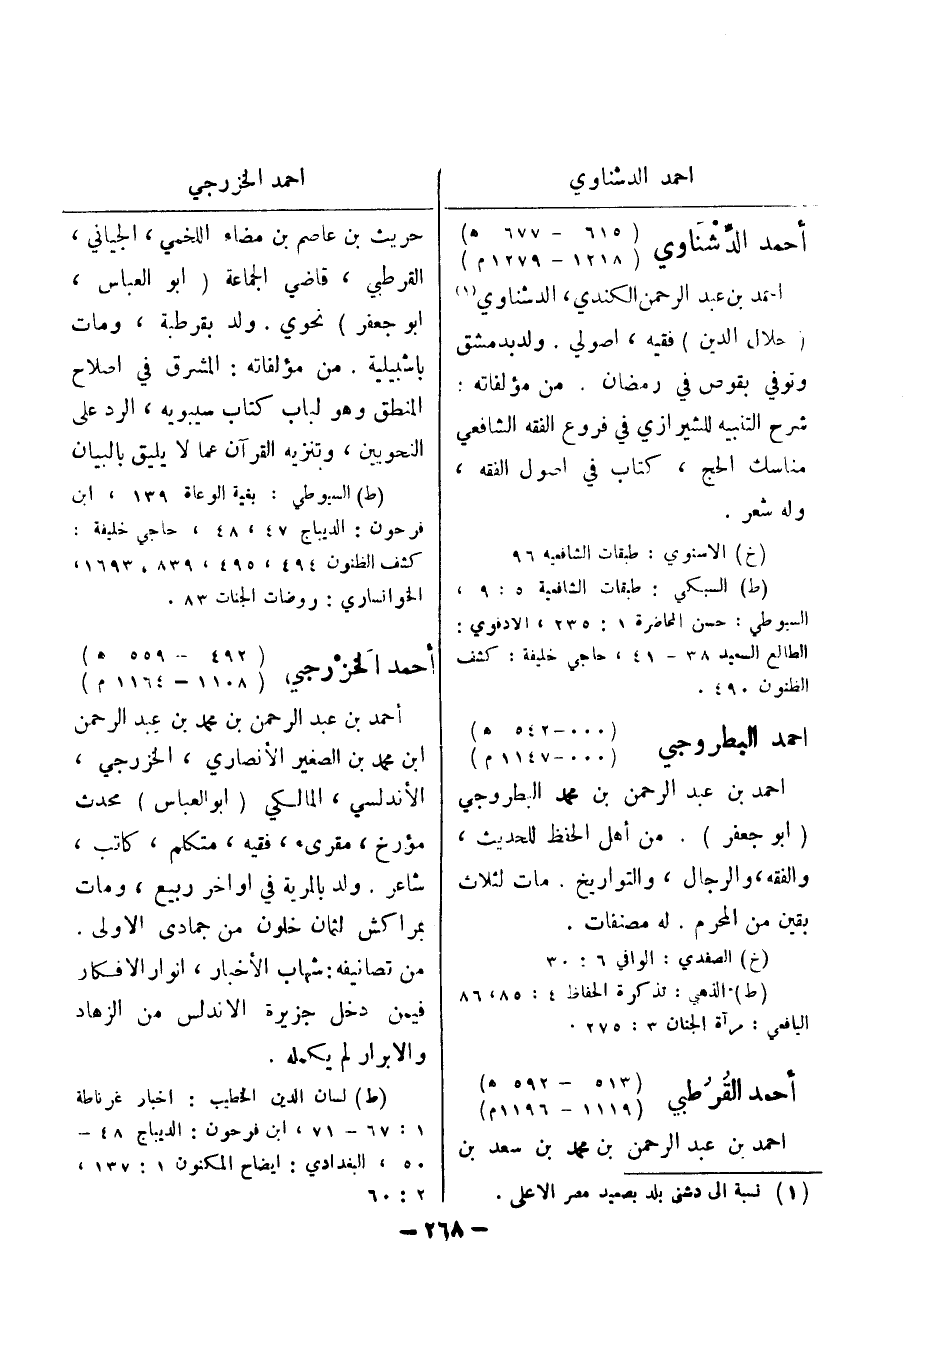 احمد الدشناوي
أحمد الدِّشْنَاوي ( ٦١٥ – ٦٧٧ ه )
( ١٢١٨ – ١٢٧٩ م )
احمد بن عبد الرحمن الكندي ، الدشناوي (١)
( جلال الدين ) فقيه ، اصولي . ولد بدمشق
وتوفي بقوص في رمضان . من مؤلفاته :
شرح التنبيه للشيرازي في فروع الفقه الشافعي
مناسك الحج ، كتاب في اصول الفقه ،
وله شعر .
(خ) الاسنوي : طبقات الشافعية ٩٦
(ط) السبكي : طبقات الشافعية ٥ : ٩ ،
السيوطي : حسن المحاضرة ١ : ٢٣٥ ، الادفوي :
الطالع السعيد ٣٨ – ٤١ ، حاجي خليفة : كشف
الظنون ٤٩٠ .
احمد البطروجي (٠٠٠–٥٤٢ ه )
(٠٠٠–١١٤٧ م )
احمد بن عبد الرحمن بن محمد البطروجي
( ابو جعفر ) . من أهل الحفظ للحديث ،
والفقه ، والرجال ، والتواريخ . مات لثلاث
بقين من المحرم . له مصنفات .
(خ) الصفدي : الوافي ٦ : ٣٠
(ط) الذهبي : تذكرة الحفاظ ٤ : ٨٥ ، ٨٦
اليافعي : مرآة الجنان ٣ : ٢٧٥ .
أحمد القُرطبي (٥١٣ – ٥٩٢ ه )
(١١١٩ – ١١٩٦ م)
احمد بن عبد الرحمن بن محمد بن سعد بن
(١) نسبة الى دشنى بلد بصعيد مصر الاعلى .
احمد الخزرجي
حريث بن عاصم بن مضاء اللخمي ، الجياني ،
القرطبي ، قاضي الجماعة ( ابو العباس ،
ابو جعفر ) نحوي . ولد بقرطبة ، ومات
باشبيلية . من مؤلفاته : المشرق في اصلاح
المنطق وهو لباب كتاب سيبويه ، الرد على
النحويين ، وتنزيه القرآن عما لا يليق بالبيان
(ط) السيوطي : بغية الوعاة ١٣٩ ، ابن
فرحون : الديباج ٤٧ ، ٤٨ ، حاجي خليفة :
كشف الظنون ٤٩٤ ، ٤٩٥ ، ٨٣٩ ، ١٦٩٣ ،
الخوانساري : روضات الجنات ٨٣ .
أحمد الخزْرجي ( ٤٩٢ – ٥٥٩ ه )
( ١١٠٨ – ١١٦٤ م )
أحمد بن عبد الرحمن بن محمد بن عبد الرحمن
ابن محمد بن الصغير الأنصاري ، الخزرجي ،
الأندلسي ، المالكي ( ابو العباس ) محدث
مؤرخ ، مقرىء ، فقيه ، متكلم ، كاتب ،
شاعر . ولد بالمرية في اواخر ربيع ، ومات
بمراكش لثمان خلون من جمادى الاولى .
من تصانيفه : شهاب الأخبار ، انوار الافكار
فيمن دخل جزيرة الاندلس من الزهاد
والابرار لم يكمله .
(ط) لسان الدين الخطيب : اخبار غرناطة
١ : ٦٧ – ٧١ ، ابن فرحون : الديباج ٤٨ –
٥٠ ، البغدادي : ايضاح المكنون ١ : ١٣٧ ،
٢ : ٦٠
– ٢٦٨ –